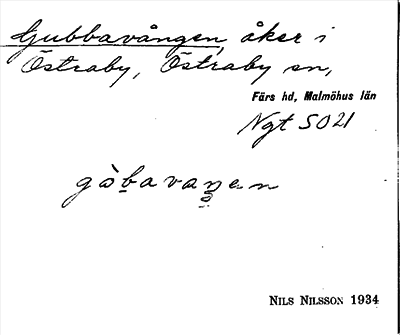 Gubbavången, åker i
Östraby, Östraby sn,
Färs hd, Malmöhus län
Ngt SO21
gòbavaŋen
NILS NILSSON 1934